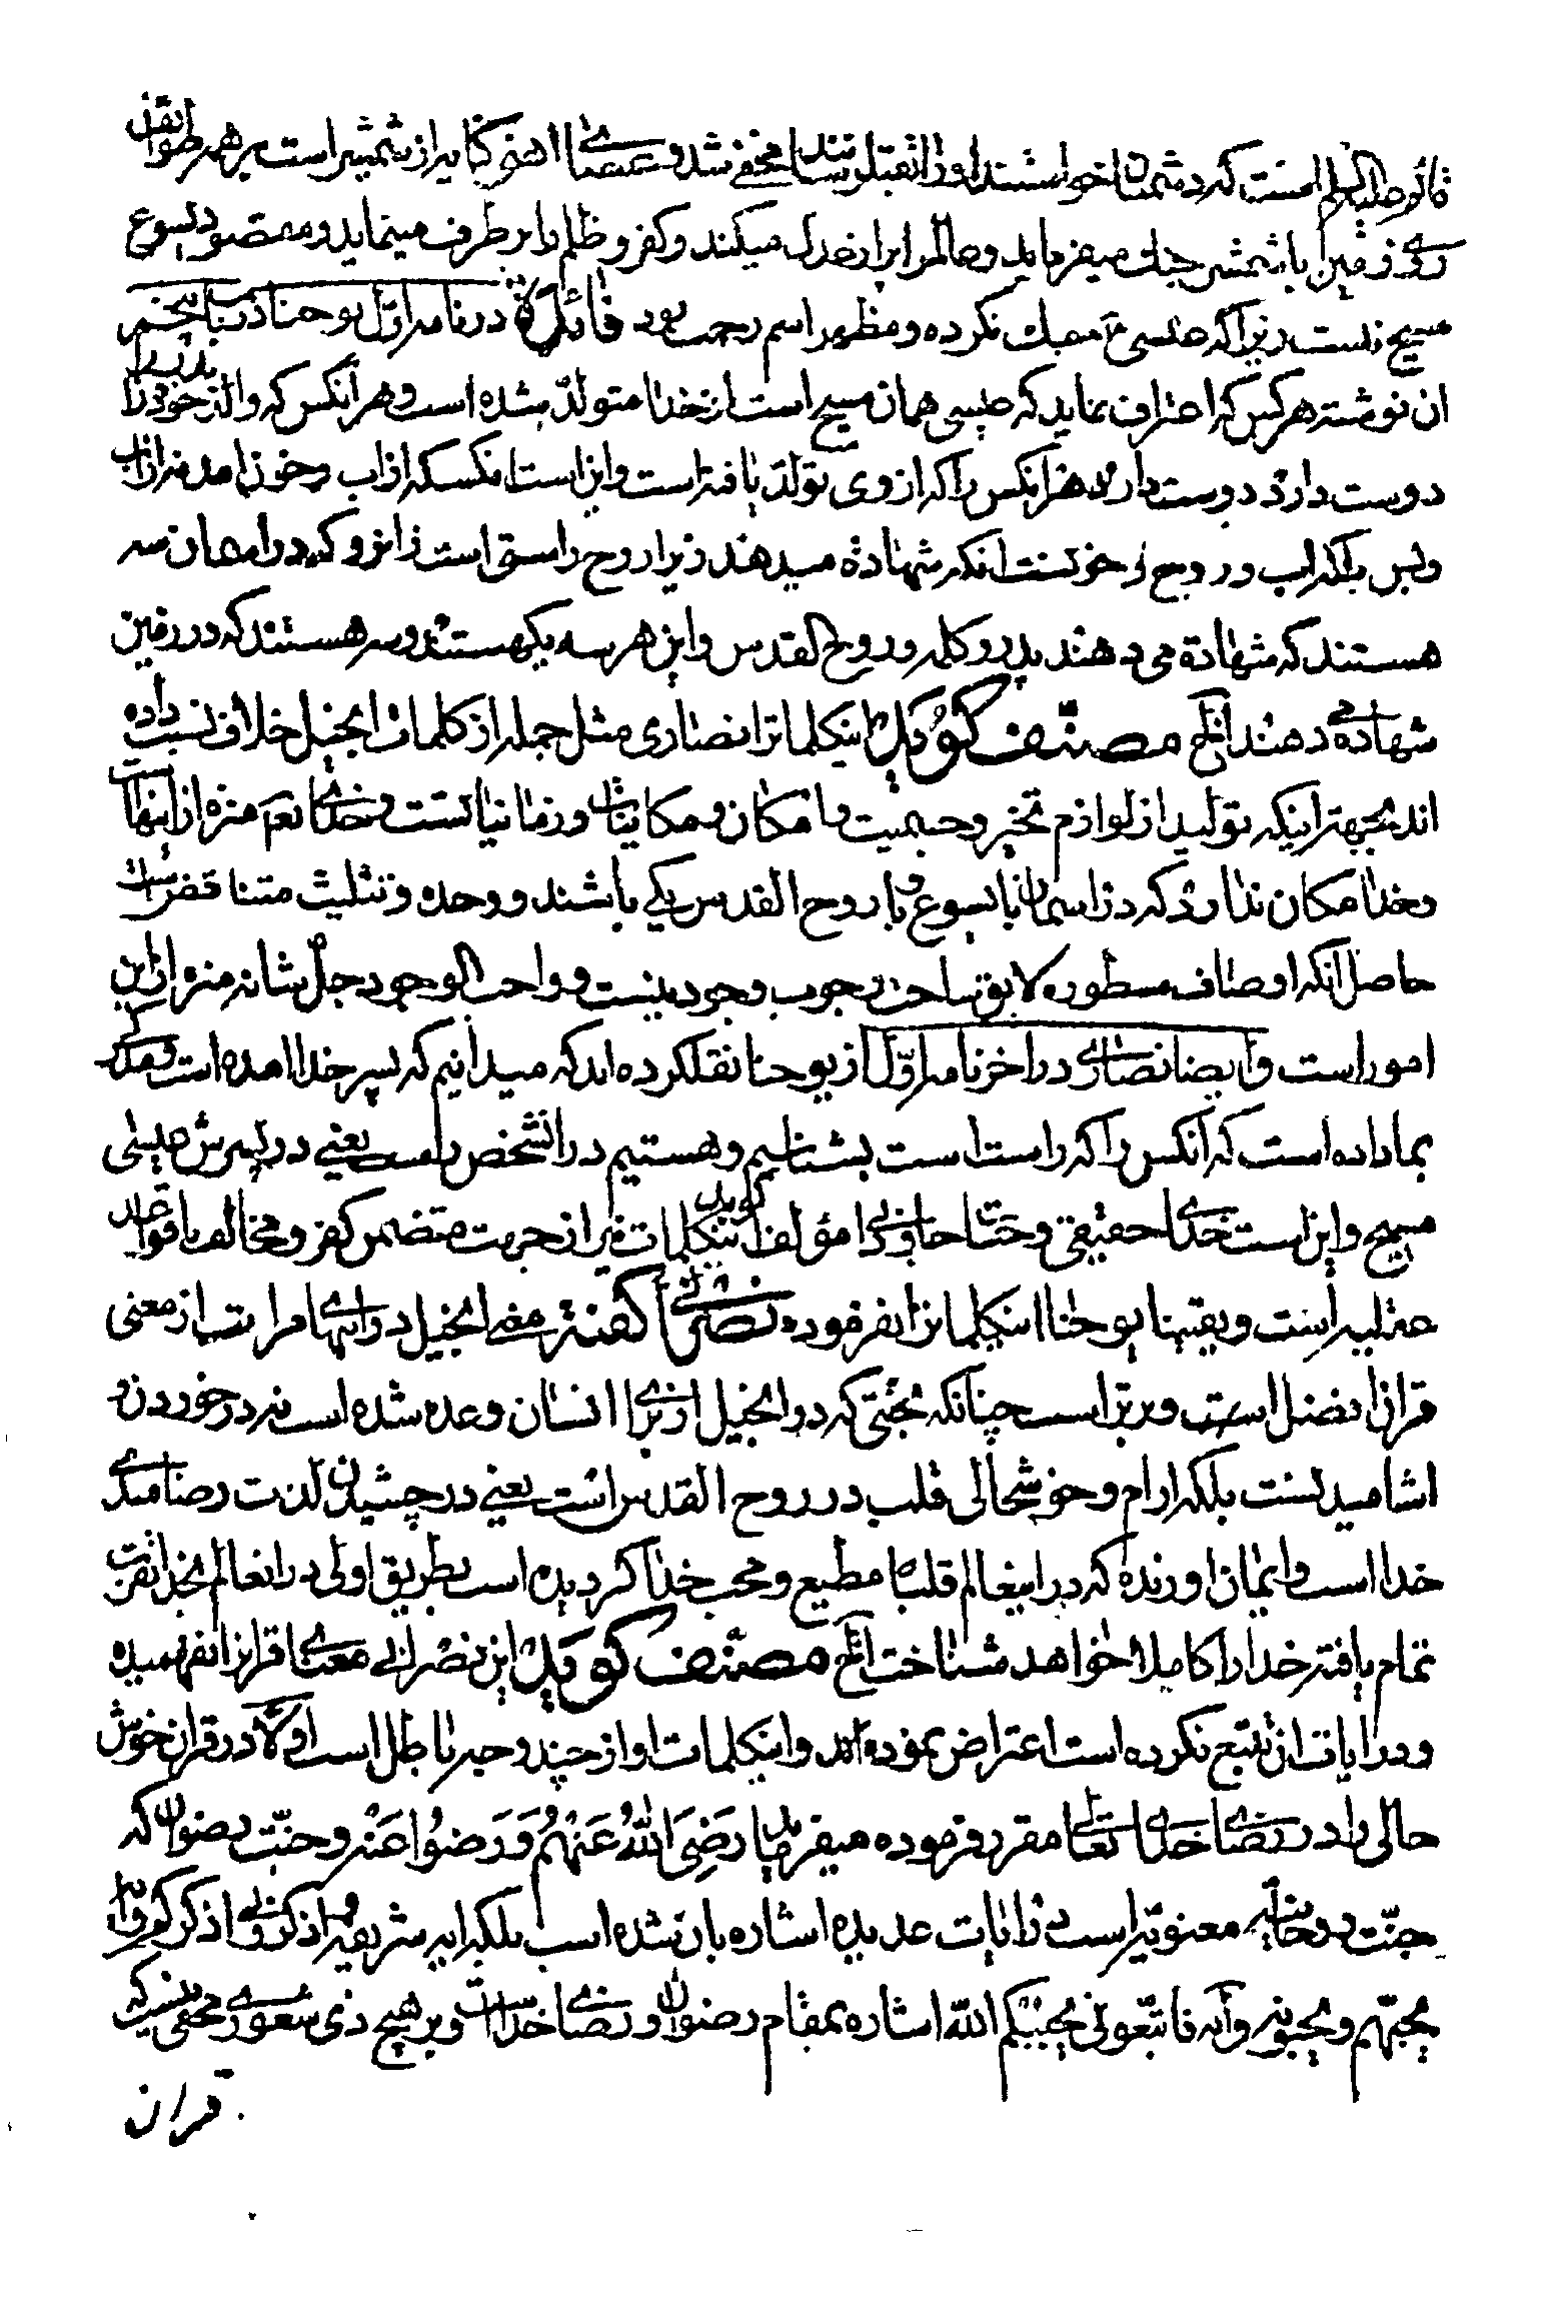 قائم علیه السلم است که دشمنان خواستند او را بقتل رسانند مخفی شد و عصای اهنی کنایه از شمشیر است بر همه طوائف
روی زمین با شمشیر جنك میفرماید و عالم را پر از عدل میکند و کفر و ظلم را بر طرف مینماید و مقصود یسوع
مسیح نیست زیرا که عیسی ع جنك نکرده و مظهر اسم رحمت بود فائدة در نامه اوّل یوحنا در باب پنجم
ان نوشته هر کس که اعتراف نماید که عیسی همان مسیح است از خدا متولّد شده است و هر انکس که والد پدر را خود را
دوست دارد دوست دارد هر انکس را که از وی تولّد یافته است و این است انکسکه از اب و خون امد نه از اب
و بس بلکه اب و روح و خونست انکه شهادة میدهد زیرا روح راستی است زانرو که در اسمان سه
هستند که شهادة می دهند پدر و کلمه و روح القدس و این هر سه یکی هستند و سه هستند که در زمین
شهادة می دهند انتهی مصنّف کوید اینکلمات را نصاری مثل جمله از کلمات انجیل خلاف نسبت داده
اند بجهة اینکه تولید از لوازم تحیّز و جسمیت و امکان و مکانیات و زمانیاتست و خدای تعم منزه از اینها است
و خدا مکان ندارد که در اسمان با یسوع و با روح القدس یکی باشند و وحده و تثلیث متناقض است
حاصل انکه اوصاف مسطوره لایق ساحت وجوب وجود نیست و واجب الوجود جلّ شانه منزه از این
امور است و ایضا نصاری در اخر نامه اوّل از یوحنا نقلکرده اند که میدانیم که پسر خدا امده است و مدرکی
بما داده است که انکس را که راست است بشناسیم و هستیم در انشخص راست یعنی در پسرش عیسی
مسیح و این است خدای حقیقی و حیات جاودانی مؤلف کوید اینکلمات نیز از جهت متضمن کفر و مخالف با قواعد
عقلیه است و یقینا یوحنا اینکلمات را نفرموده نصرانی کفته معنی انجیل در ایتها مراتب از معنی
قران افضل است و برتر است چنانکه جنّتی که در انجیل از برای انسان وعده شده است نه در خوردن و
اشامیدنست بلکه ارام و خوشحالی قلب در روح القدس است یعنی در چشیدن لذت رضامندی
خدا است و ایمان اورنده که در اینعالم قلبا مطیع و محب خدا کردیده است بطریق اولی در انعالم بخدا تقرب
تمام یافته خدا را کاملا خواهد شناخت انتهی مصنّف کوید این نصرانی معنای قران را نفهمیده
و در ایات ان تتبع نکرده است اعتراض نموده اند و اینکلمات او از چند وجه باطل است اولا در قران خوش
حالی را در رضای خدای تعالی مقرر فرموده میفرماید رَضِیَ اللّٰهُ عَنْهُمْ وَ رَضُوا عَنْه و جنّت رضوان که
جنّت روحانیه معنویّه است در ایات عدیده اشاره بان شده است بلکه ایه شریفه و اذکرونی اذکرکم و ایه
یحبّهم و یحبّونه و ایه فاتّبعونی یحببکم اللّه اشاره بمقام رضوان و رضای خدا است و بر هیچ ذی شعوری مخفی نیست که
قران